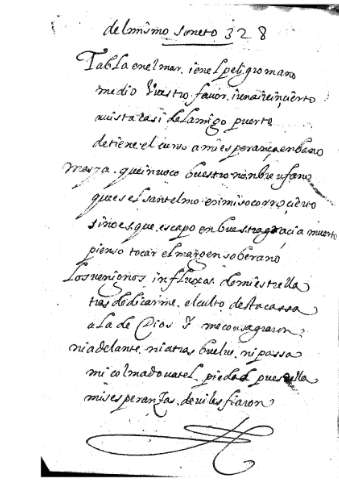 del mismo soneto 328
Tabla en el mar, i en el peligro mano
me dio Vuestro favor, i una rei, cierto
a vista casi del amigo puerto
detiene el curso a mi esperança en bano
Marza, que inuoco buestro nonbre ufano
que es el santelmo en mi socorro, cierto
si no es que escapo en buestra gracia muerto
pienso tocar el margen soberano
Los benignos influxos de mi estrella
tras dedicarme el culto de sta cassa
a la de Dios Y me consagraron
ni adelante, ni atras buelue, ni passa
mi colmado uajel, piedad pues della
mis esperanzas, deuiles fiaron